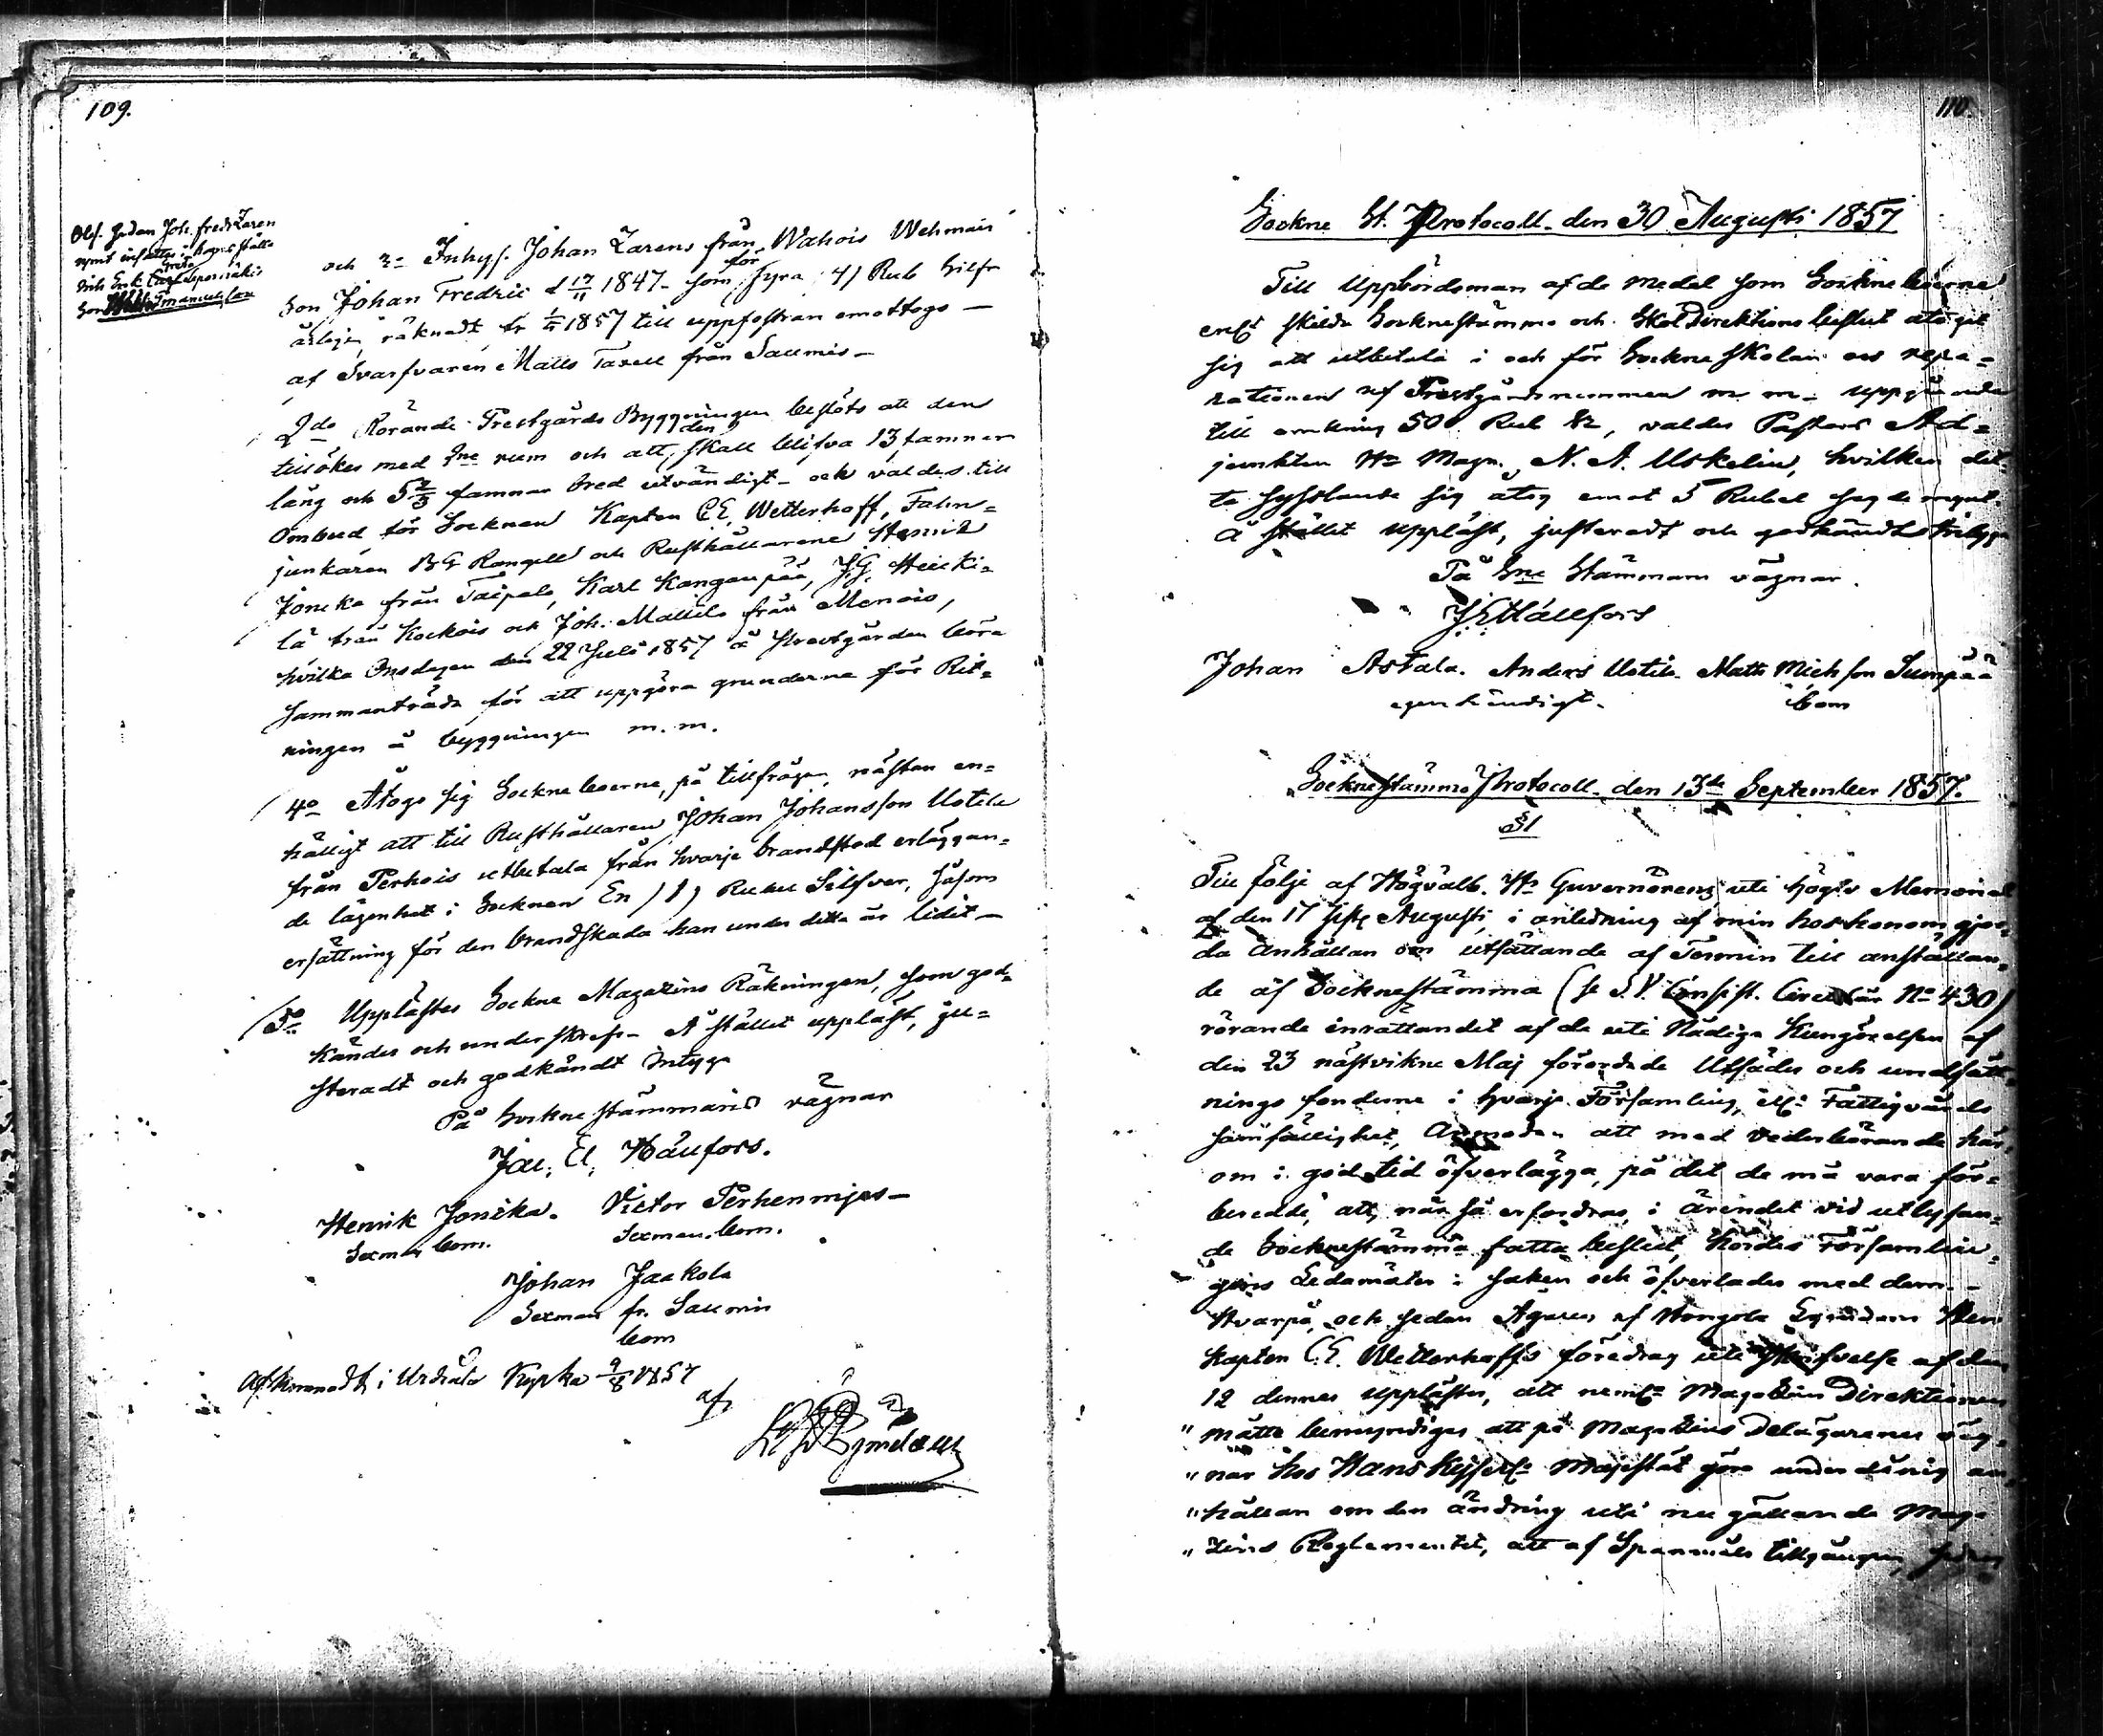 109.
Obs. sedan Joh. Fredr. Zaren
rymt insattes i hogens ställe
Erik Carl Seponmäkis
Son Emanuelsson
och 2= Inhys. Johan Zarens från Wahois Wehmais
Son Johan Fredric d 17/11 1847- som för fyra /4/ Rub Silfr
årligen, räknadt fr 1/5 1857 till uppfostran emottogs —
af Svarfvaren Matts Taxell från Saumis —
2do Rörande Prestgårds Byggningen beslöts att den
tillökes med 2ne rum och att den skall blifva 13 famnar
lång och 5 2/3 famnar bred utvändigt - och valdes till
Ombud för Socknen Kapten C.E. Wetterhoff, Fahn=
junkaren B G Rangell och Rusthållarene Henric
Joncka från Taipale, Karl Kangaupää, J.G. Heicki=
lä från Kockois och Joh. Mattila från Menois,
hvilka Onsdagen den 22 Julii 1857 å Prestgården böra
sammanträda för att uppgöra grunderna för Rit=
ningen å byggningen m. m.
4o Åtogo sig Sockneboerne, på tillfrågan, nästan en=
hälligt att till Rusthållaren Johan Johansson Uotila
från Perhois utbetala från hvarje brandstod erläggan=
de lägenhet i Socknen En /1/ Rubel Silfver, såsom
ersättning för den brandskada han under detta år lidit —
5o Upplästes Sockne Magazins Räkningen, som god=
kändes och underskrefs - Å stället uppläst, ju=
steradt och godkändt intyga
På Sockne stämmans vägnar
Jac. El. Hällfors.
Henrik Joncka. Victor Perhenmijes —
Sexman bom. Sexman. bom.
Johan Jaakola
Sexman fr. Saumis
bom
Afkunnadt i Urdiala Kyrka 9/8 1857
af
110.
Sockne St. Protocoll den 30 Augusti 1857
Till Uppbördsman af de medel som Sockneboerne
enl. skilda Socknestämmo och Skol Direktions beslut åtagit
sig att utbetala i och för Sockne skolan och repa=
rationen af Prestgårdsrummen m m - uppgående
till omkring 500 Rub Sr, valdes Pastors Ad=
junkten Hr Magn. N. A. Uskelin, hvilken det=
ta sysslande sig åtog emot 5 Rubel
å stället uppläst, justeradt och godkändt intyga
På Sne Stämmans vägnar.
J E Hällfors
Johan Astala. Anders Uotila Matts Michsson Sumpää
egenhändigt. bom
Sockne stämmo Protocoll den 13de September 1857.
§1
Till följe af Högvälb. Hr Guvernörens uti högtv Memorial
af den 17 siste Augusti, i anledning af min hos honom gjor=
da Anhållan om utsättande af Termin till anställan=
de af Socknestämma (se D.V. Consist. Circulär No 430)
rörande inrättandet af de uti Nådiga Kungörelsen af
den 23 nästvikne Maj förordnade Utsädes och undsätt=
nings fonderne i hvarje Församling, ell. Fattigvårds
samfällighet, Anmodan att med vederbörande här=
om i god tid öfverlägga, på det de må vara för=
beredde, att, när så erfordras, i ärendet vid utlysan=
de Socknestämma fatta beslut, hördes Församlin=
gens Ledamöter i saken och öfverlades med dem. —
Hvarpå, och sedan Ägaren af Hongola Egendom Herr
Kapten C.E. Wetterhoffs föredrag uti skrifvelse af den
12 dennes upplästes, att neml. Magazins Direktionen
" måtte bemyndigas att på Magazins Delägarenes väg=
" nar hos Hans Kejserl. Majestät göra underdånig an=
" hållan om den ändring uti nu gällande Maga=
" zins Reglementet, att af Spanmåls tillgången, sedan